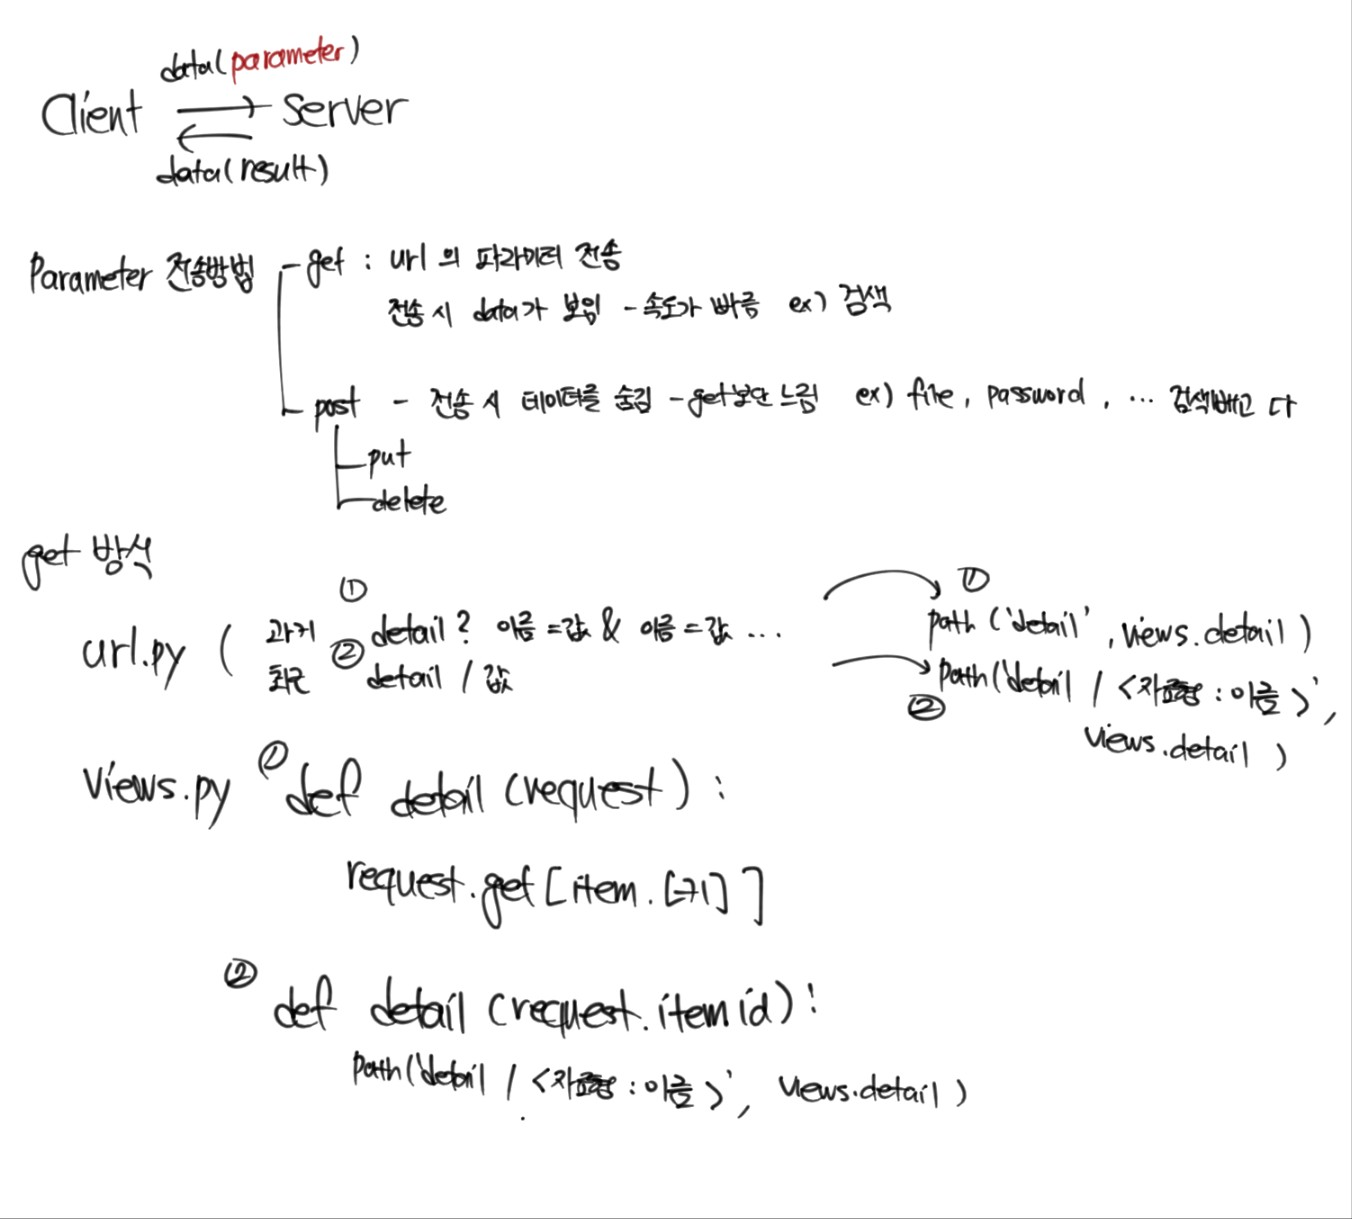 data(parameter)
Client → Server
←
data(result)
Parameter 전송방법 - get : url의 파라미터 전송
전송 시 data가 보임 - 속도가 빠름 ex) 검색
post - 전송 시 데이터를 숨김 - get보단 느림 ex) file, password, ... 검색빼고 다
put
delete
get 방식
①
url.py ( 과거 detail? 이름=값 & 이름=값 ...
최근 ② detail / 값
①
path ('detail', views.detail)
② path('detail / <자료형:이름>',
views.detail )
views.py ① def detail (request) :
request.get[item.
② def detail (request.item id) :
path('detail / <자료형:이름>', views.detail )